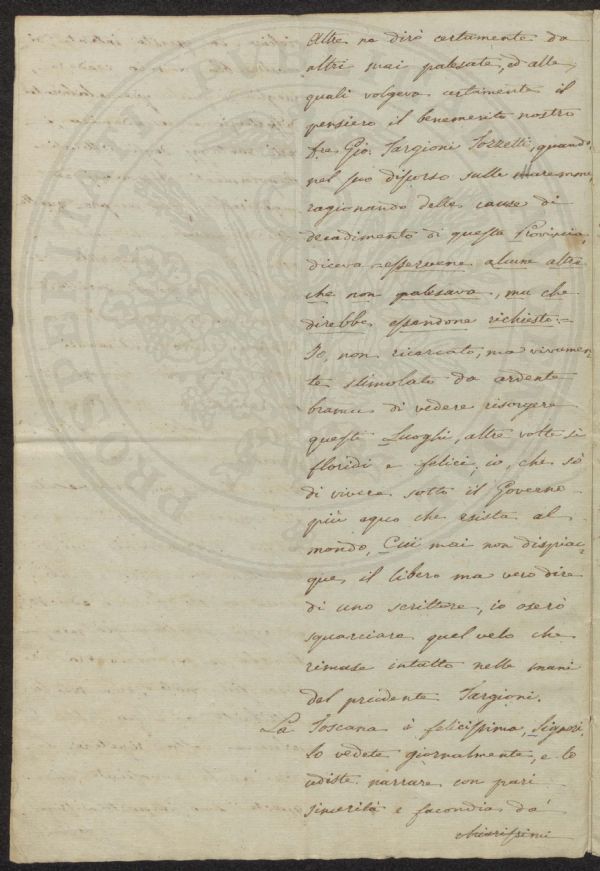 Altre ne dirò certamente da
altri mai palesate, ed alle
quali volgeva certamente il
pensiero il benemerito nostro
Gio. Targioni Tozzetti, quando
nel suo discorso sulle maremme,
ragionando delle cause di
decadimento di questa Provincia,
diceva = esservene alcune altre
che non palesava, ma che
direbbe essendone richiesto =
Io, non ricercato, ma vivamen-
te stimolato da ardente
brama di vedere risorgere
questi Luoghi, altre volte sì
floridi e felici, io, che sò
di vivere sotto il Governo
più equo che esista al
mondo, Cui mai non dispiac-
que il libero ma vero dire
di uno scrittore, io oserò
squarciare quel velo che
rimase intatto nelle mani
del prudente Targioni.
La Toscana è felicissima, Signori,
lo vedete giornalmente, e lo
udiste narrare con pari
sincerità e facondia da'
chiarissimi
PROSPERITATI PUBLICAE